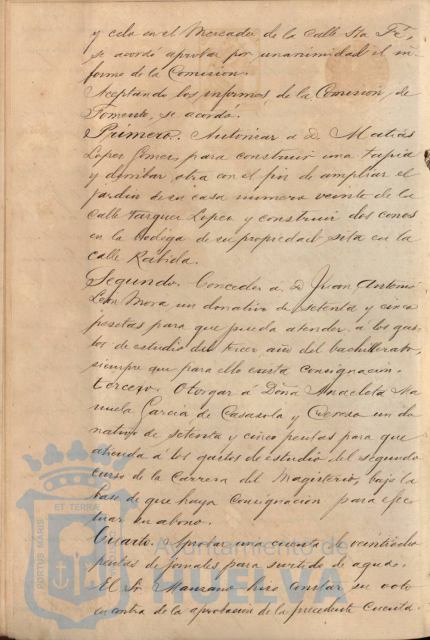 y cela en el Mercado, de la Calle Sta Fé,
se acordó aprobar por unanimidad el in-
forme de la Comision.
Aceptando los informes de la Comision de
Fomento, se acordó.
Primero. Autorizar a D. Matias
Lopez Gomez, para construir una tapia
y derribar otra con el fin de ampliar el
jardin de su casa numero veinte de la
Calle Vazquez Lopez y construir dos
en la bodega de su propiedad sita en la
calle Rábida.
Segundo. Conceder a D. Juan Antonio
León Mora un donativo de setenta y cinco
pesetas para que pueda atender a los gas-
tos de estudio del tercer año del bachillerato,
siempre que para ello exista consignacion.
Tercero. Otorgar á Doña Anacleta Ma
nuela Garcia de Casasola y un do
nativo de setenta y cinco pesetas para que
atienda a los gastos de estudio del segundo
curso de la Carrera del Magisterio, bajo la
base de que haya consignacion para efec
tuar su abono.
Cuarto. Aprobar una cuenta de veintiocho
pesetas de jornales para surtido de aguas.
El Sr. Manzano hizo constar su voto
en contra de la aprobacion de la precedente Cuenta.
PORTUS MARIS ET TERRAE
Ayuntamiento de
HUELVA